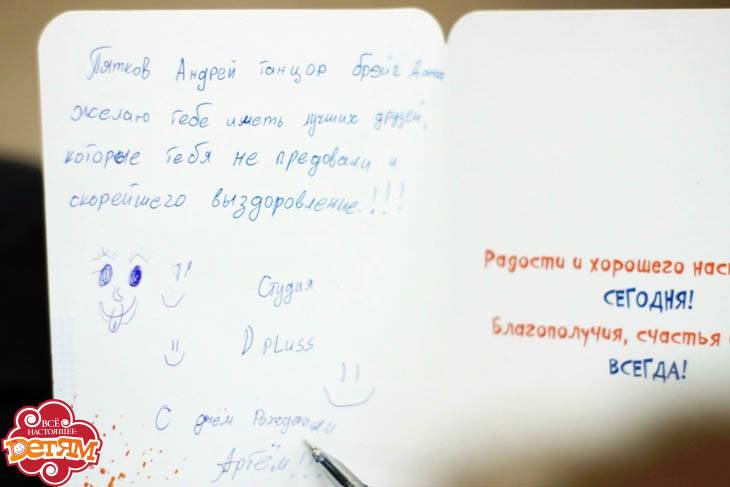 Пятков Андрей танцор брэйг
желаю тебе иметь лучших друзей,
которые тебя не предовали и
скорейшего выздоровление!!!
Студия
D pluss
С днём Рождения
Артём!!
Радости и хорошего
СЕГОДНЯ!
Благополучия, счастья
ВСЕГДА!
ВСЁ
НАСТОЯЩЕЕ-
DЕТЯМ